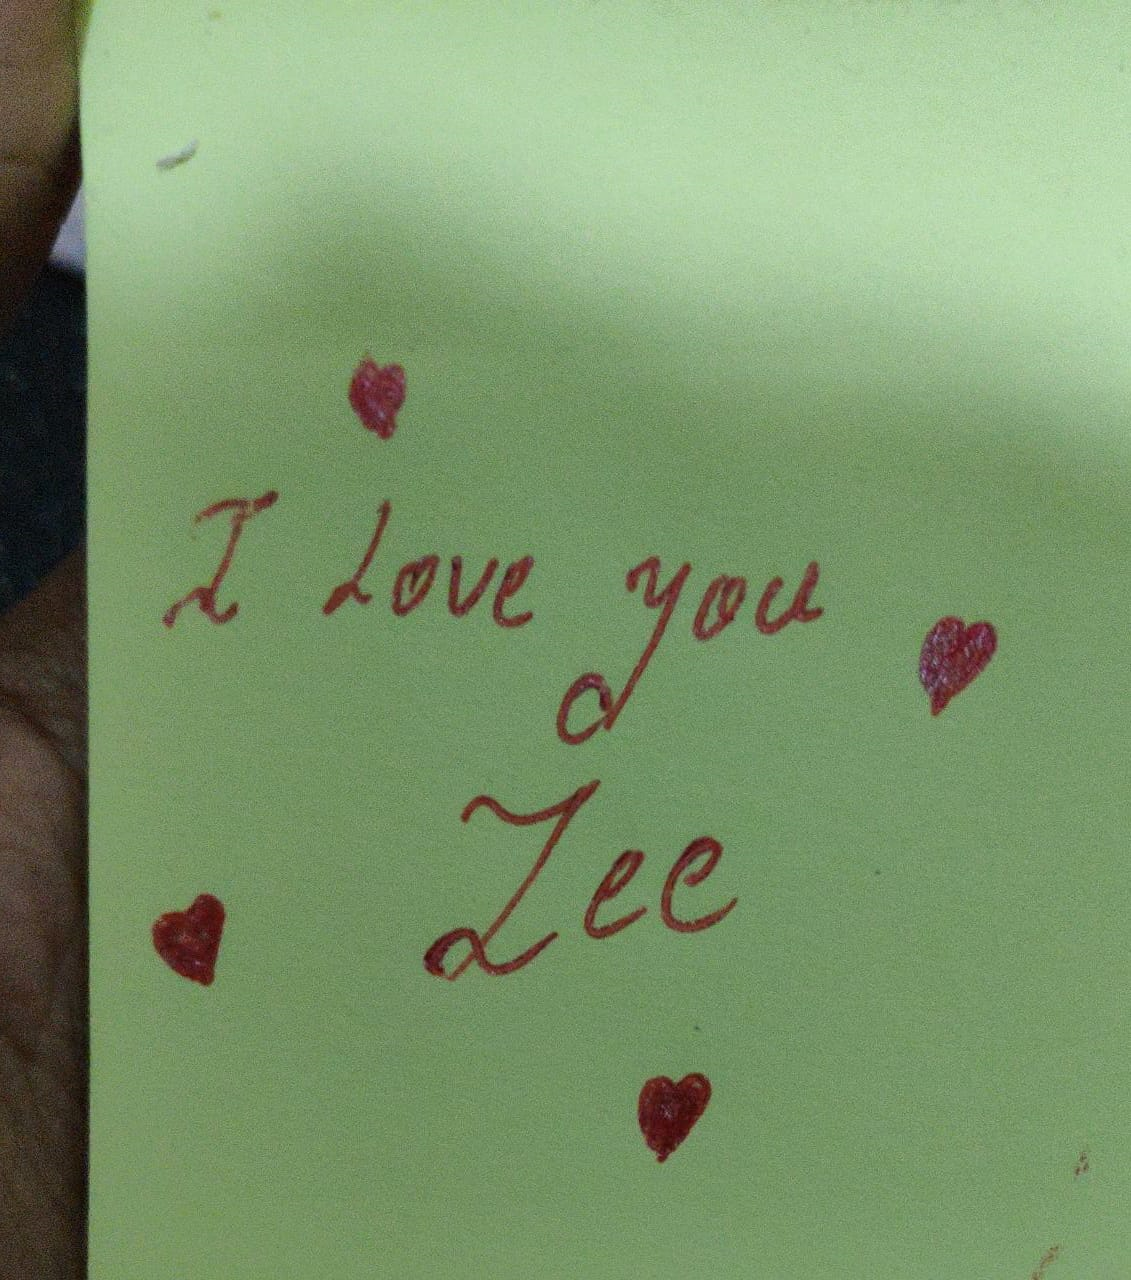 I Love you
Zee